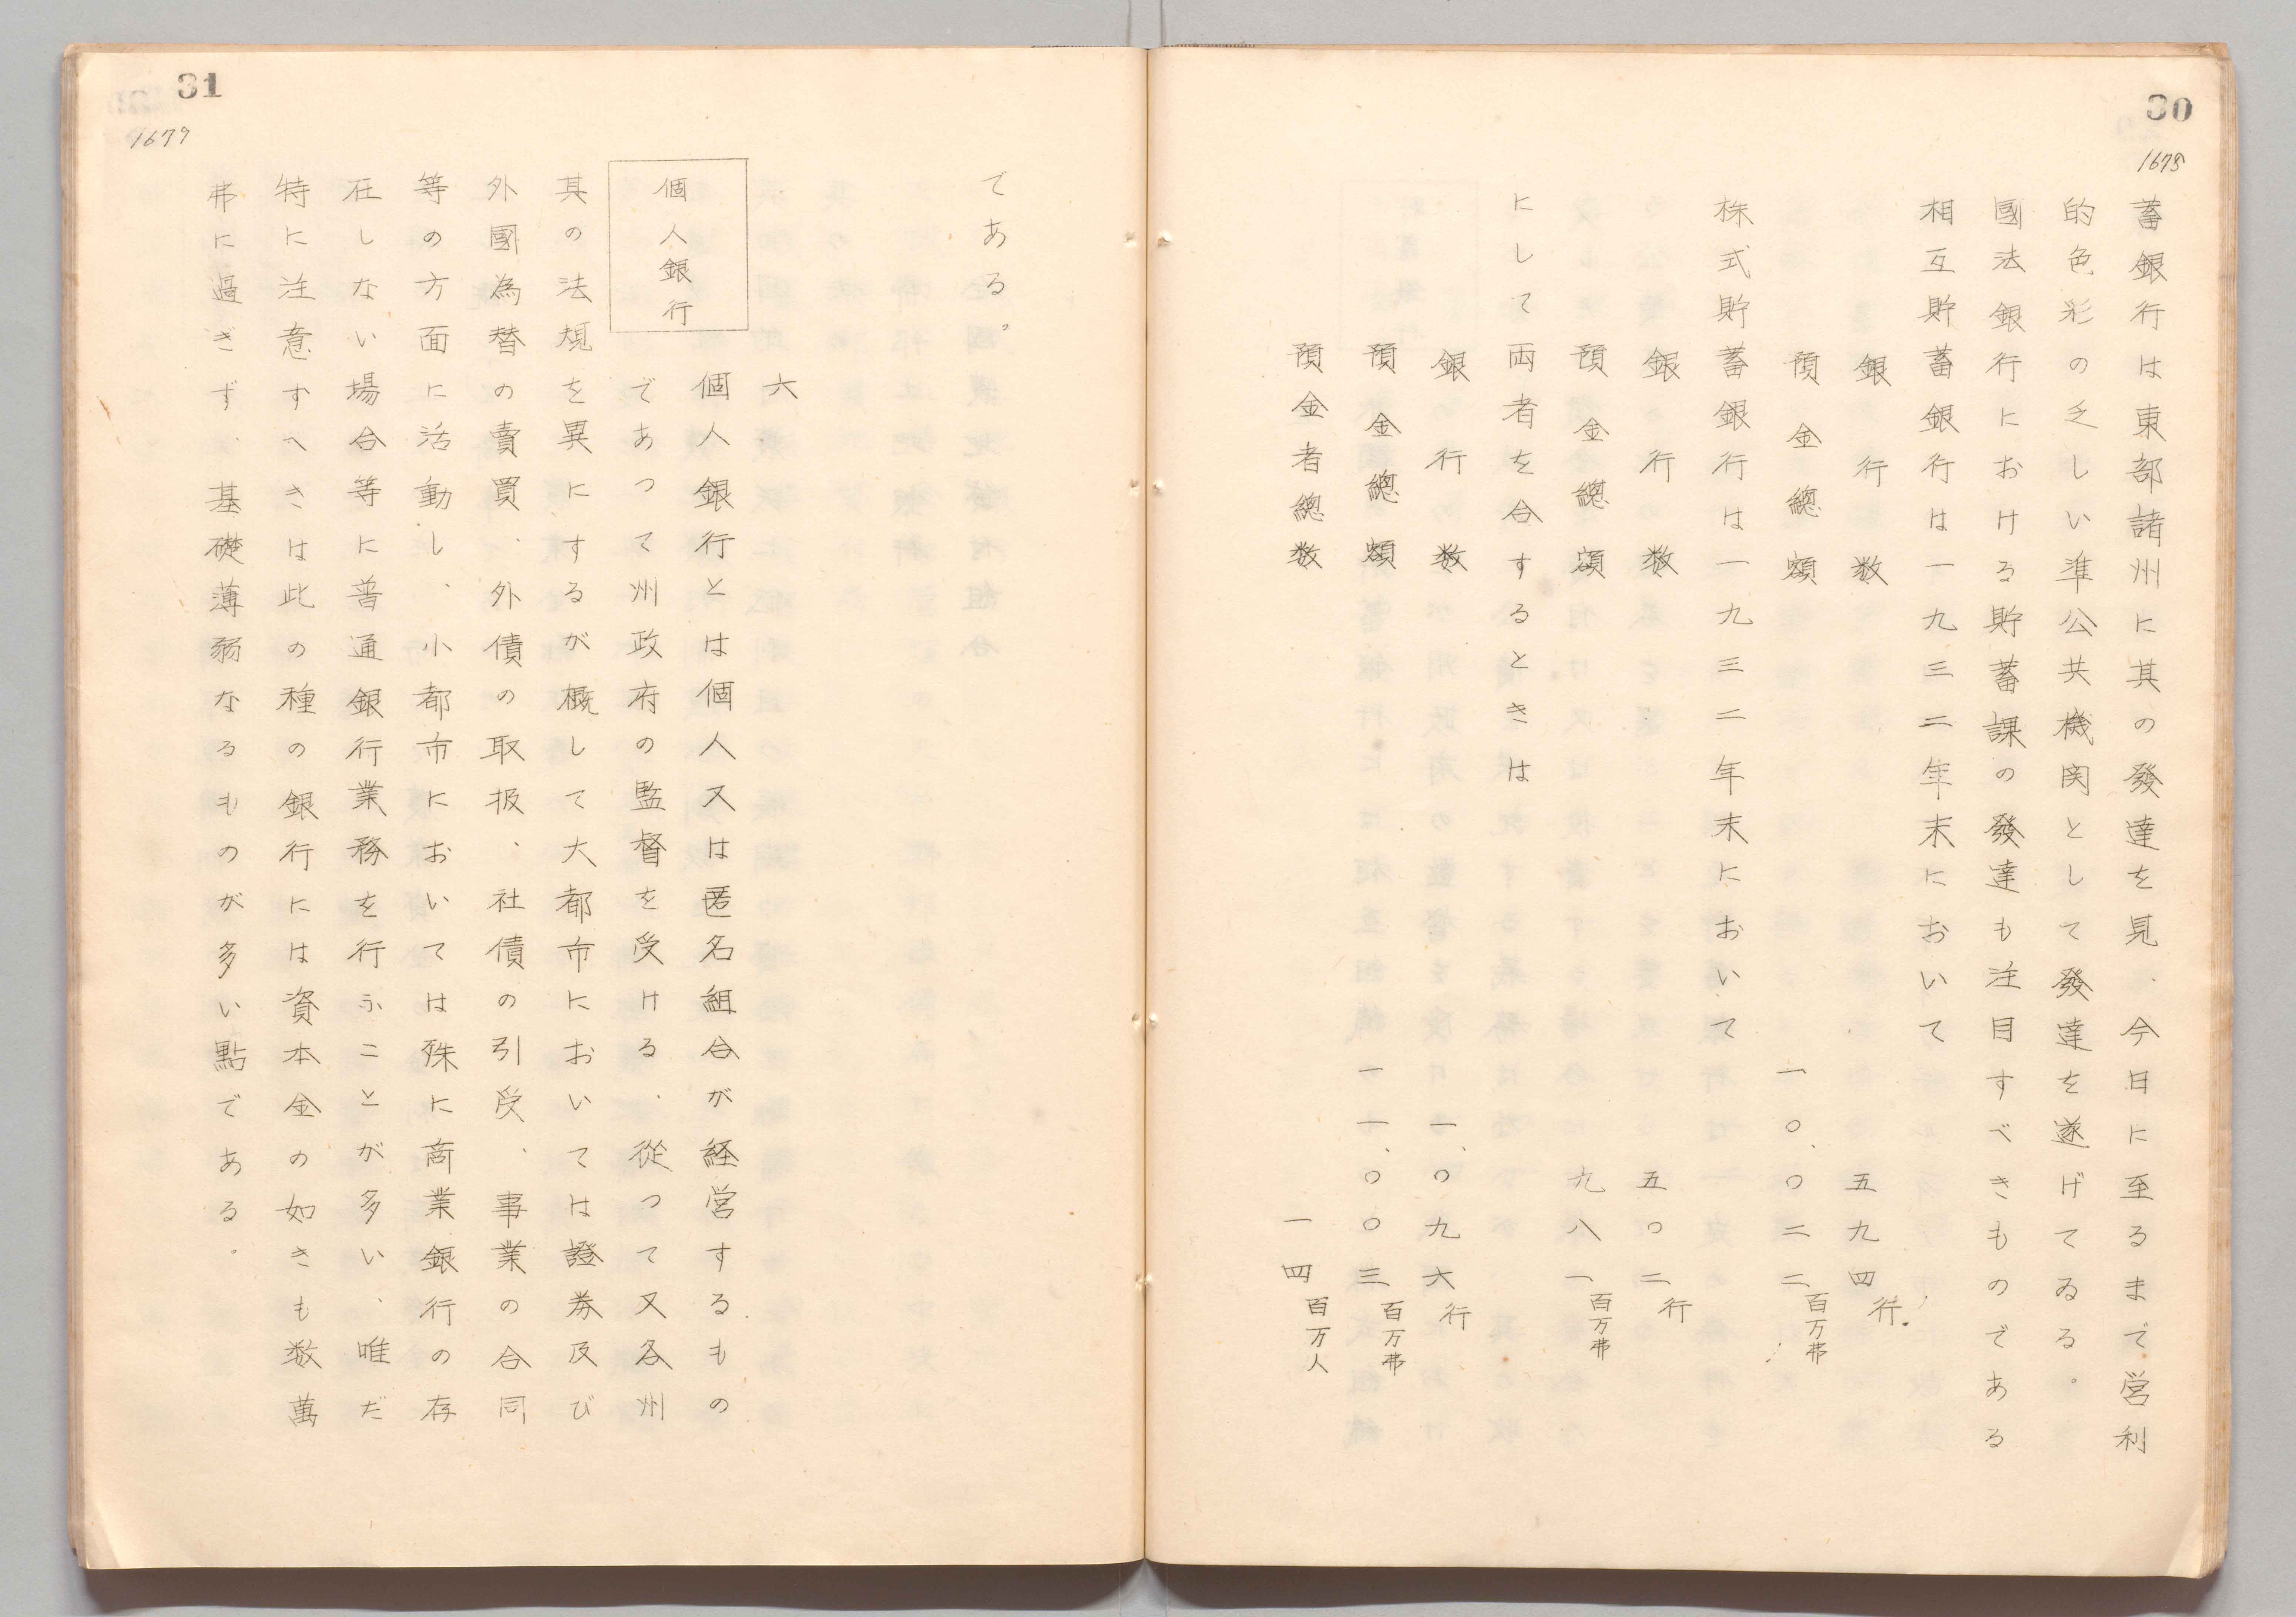 30
1678
蓄銀行は東部諸州に其の發達を見、今日に至るまで営利
的色彩の乏しい準公共機関として發達を遂げてゐる。
國法銀行における貯蓄課の發達も注目すべきものである
相互貯蓄銀行は一九三二年末において
銀行数 五九四行
預金總額 一〇、〇二二百万弗
株式貯蓄銀行は一九三二年末において
銀行数 五〇二行
預金總額 九八一百万弗
にして両者を合するときは
銀行数 一、〇九六行
預金總額 一一、〇〇三百万弗
預金者總数 一四百万人
31
1679
である。
六、
個人銀行
個人銀行とは個人又は匿名組合が経営するもの
であつて州政府の監督を受ける、從つて又各州
其の法規を異にするが概して大都市においては證券及び
外國為替の賣買、外債の取扱、社債の引受、事業の合同
等の方面に活動し、小都市においては殊に商業銀行の存
在しない場合等に普通銀行業務を行ふことが多い、唯だ
特に注意すへきは此の種の銀行には資本金の如きも数萬
弗に過ぎず、基礎薄弱なるものが多い點である。